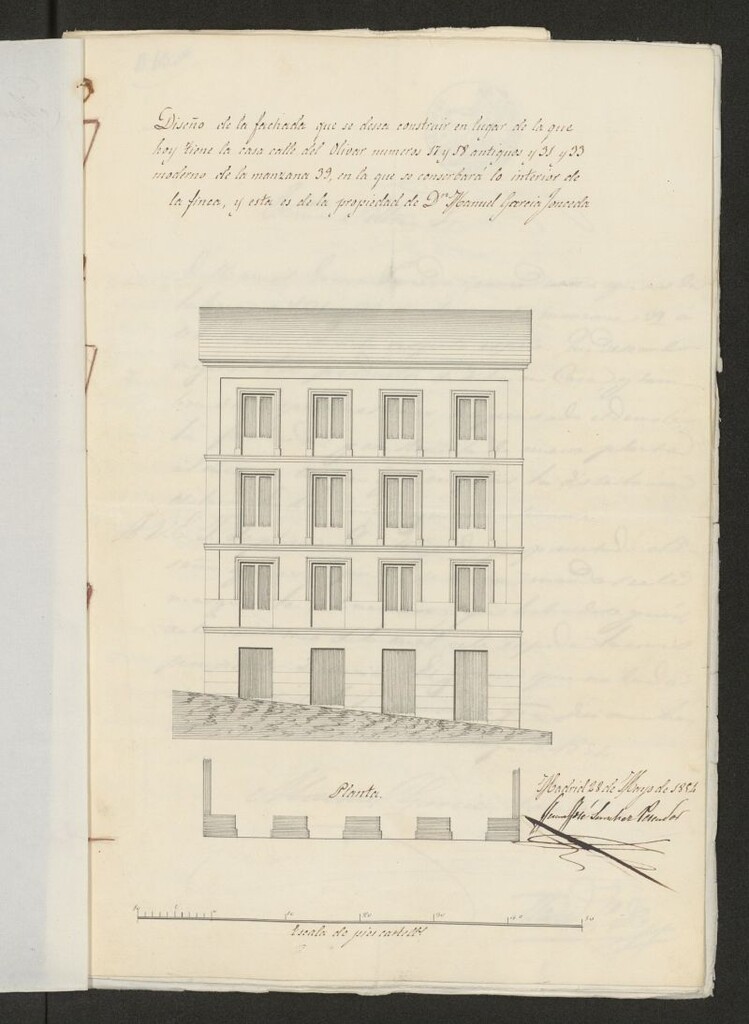 Diseño de la fachada que se desea construir en lugar de la que
hoy tiene la casa calle del Olivar numeros 17 y 18 antiguos y 31 y 33
moderno de la manzana 39, en la que se conserbará lo interior de
la finca, y esta es de la propiedad de Dn Manuel Garcia
Planta.
Madrid 28 de Mayo de
José Sanchez Pescador
Escala de pies castells